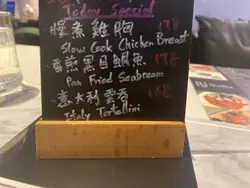 Today Special
慢煮雞胸 178
Slow Cook Chicken Breast
香煎黑目鯛魚 178
Pan Fried Seabream
意大利雲吞 168
Italy Tortellini